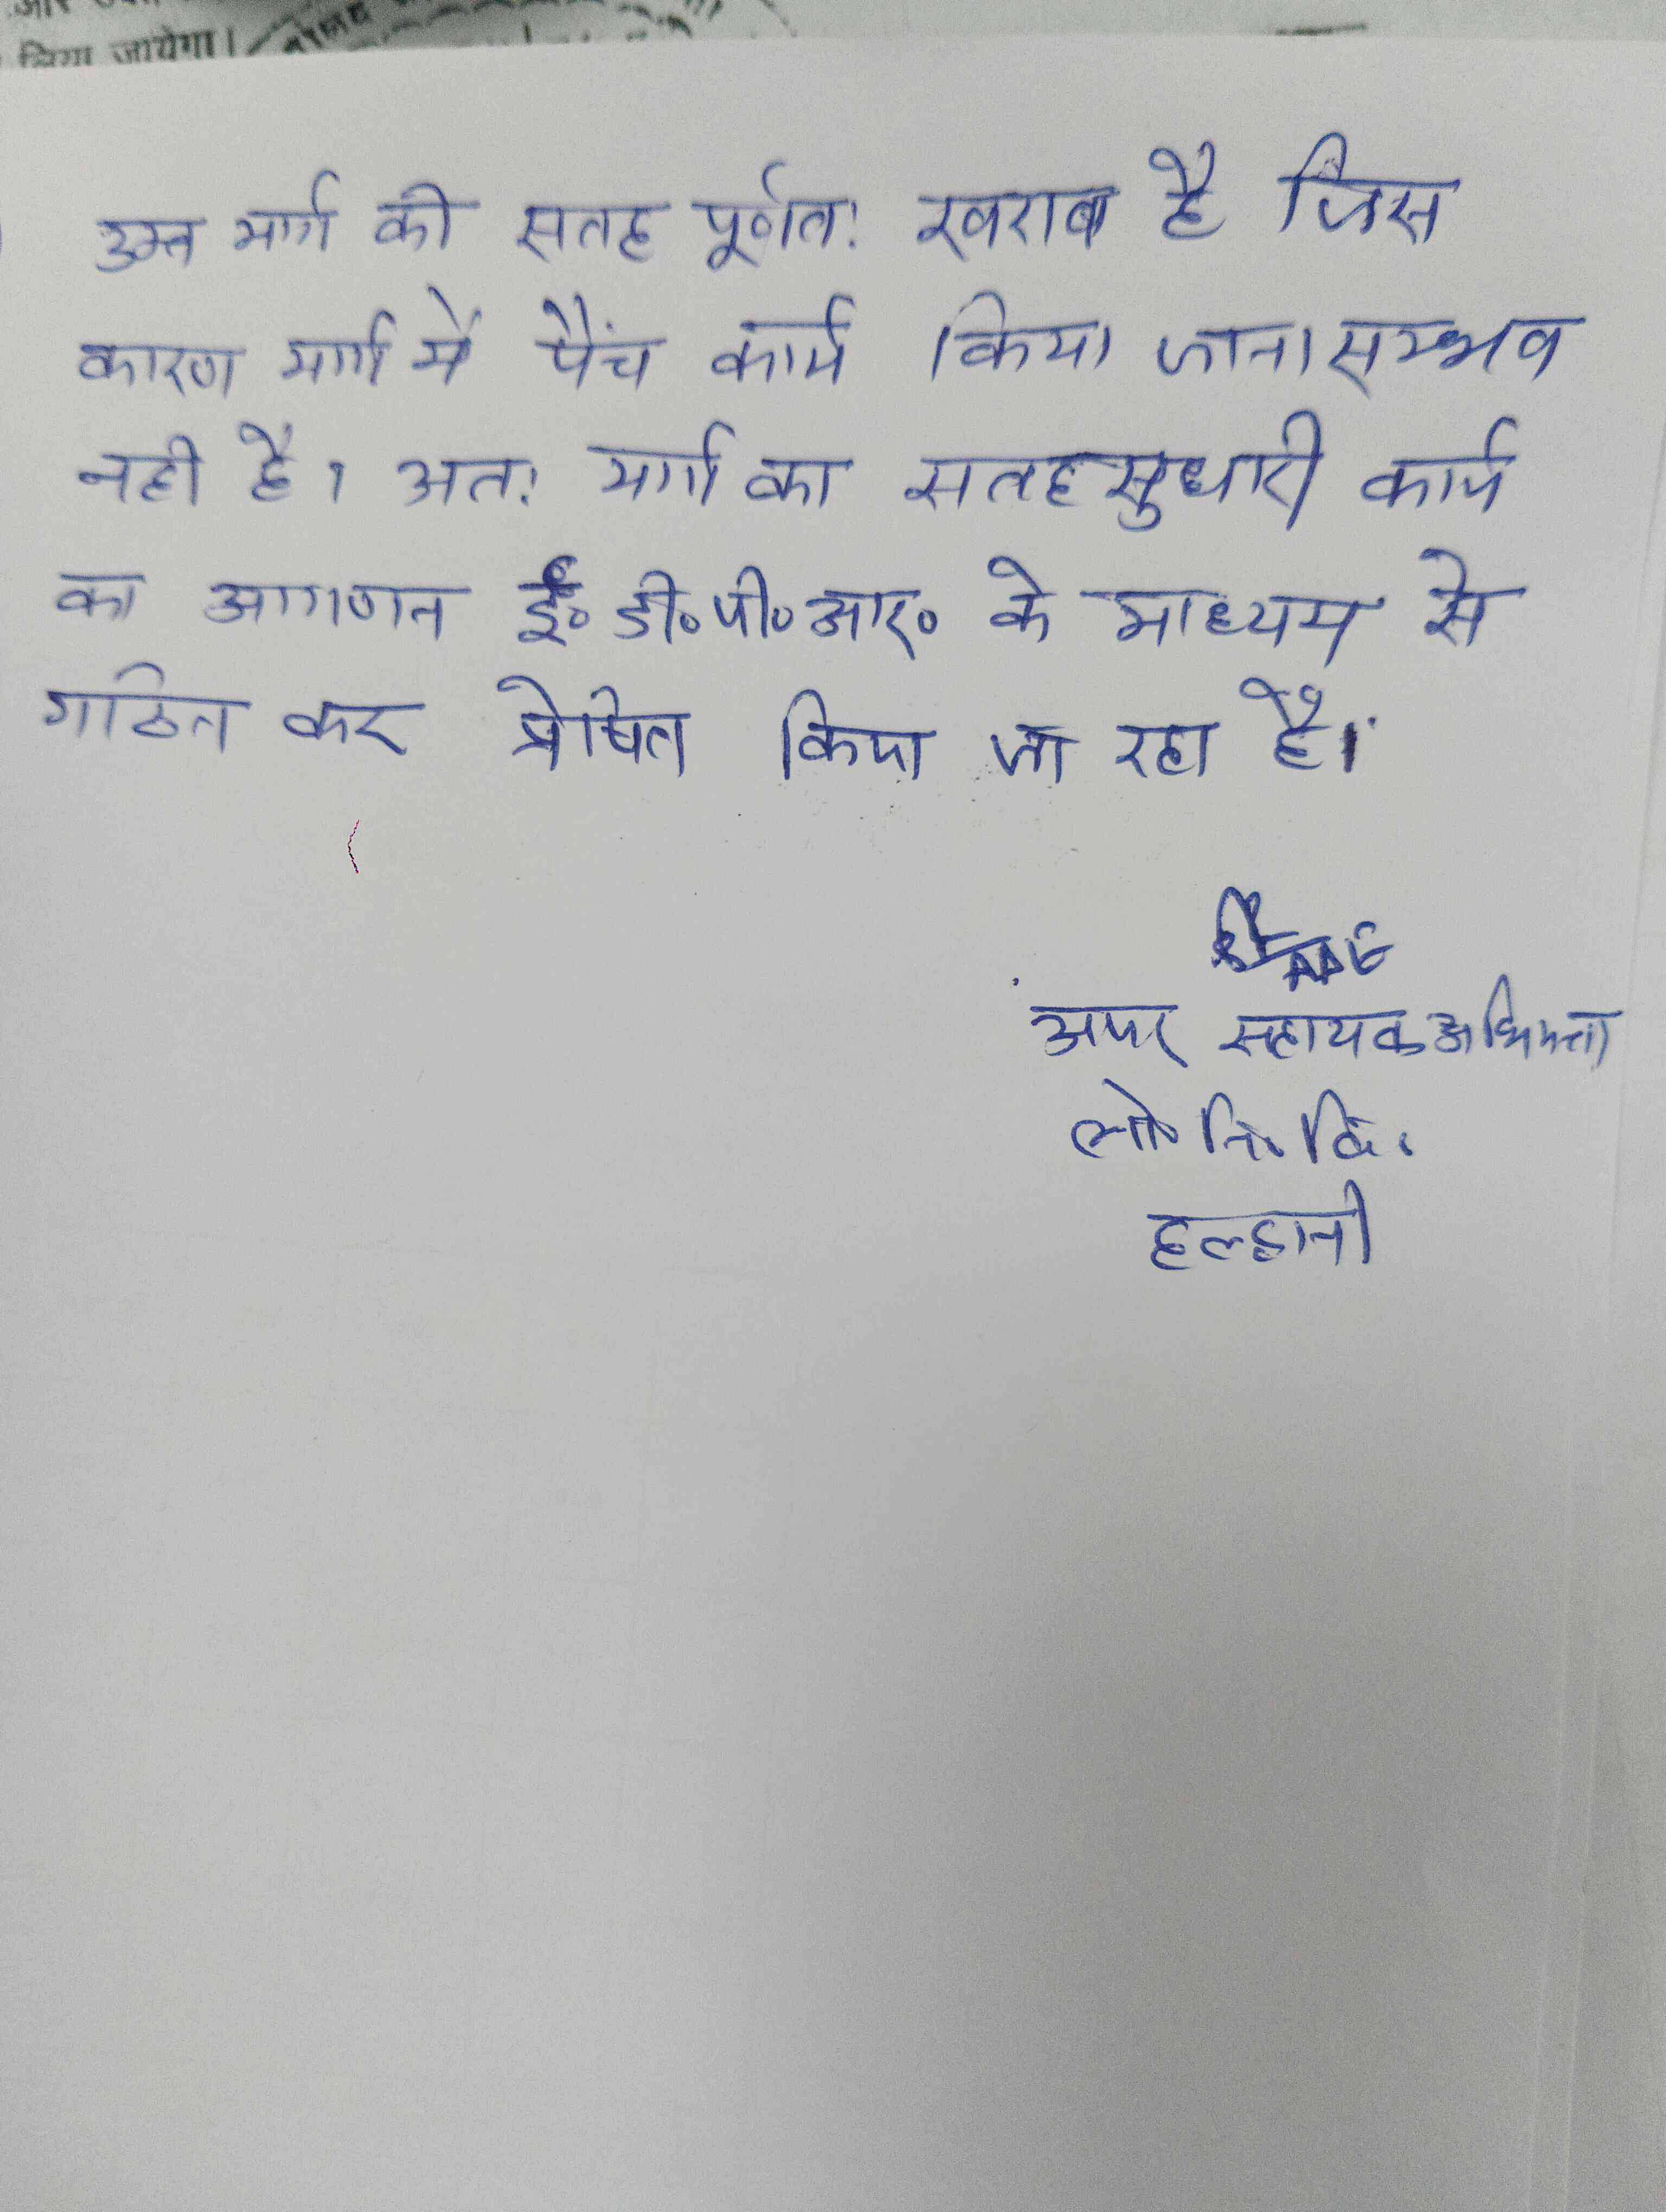 लिया जायेगा।
उक्त मार्ग की सतह पूर्णतः खराब है जिस
कारण मार्ग में पैंच कार्य किया जाना सम्भव
नही है। अतः मार्ग का सतह सुधारी कार्य
का आगणन ई० डी० पी० आर० के माध्यम से
गठित कर प्रेषित किया जा रहा है।
अपर सहायक अभियन्ता
लो० नि० वि०
हल्द्वानी